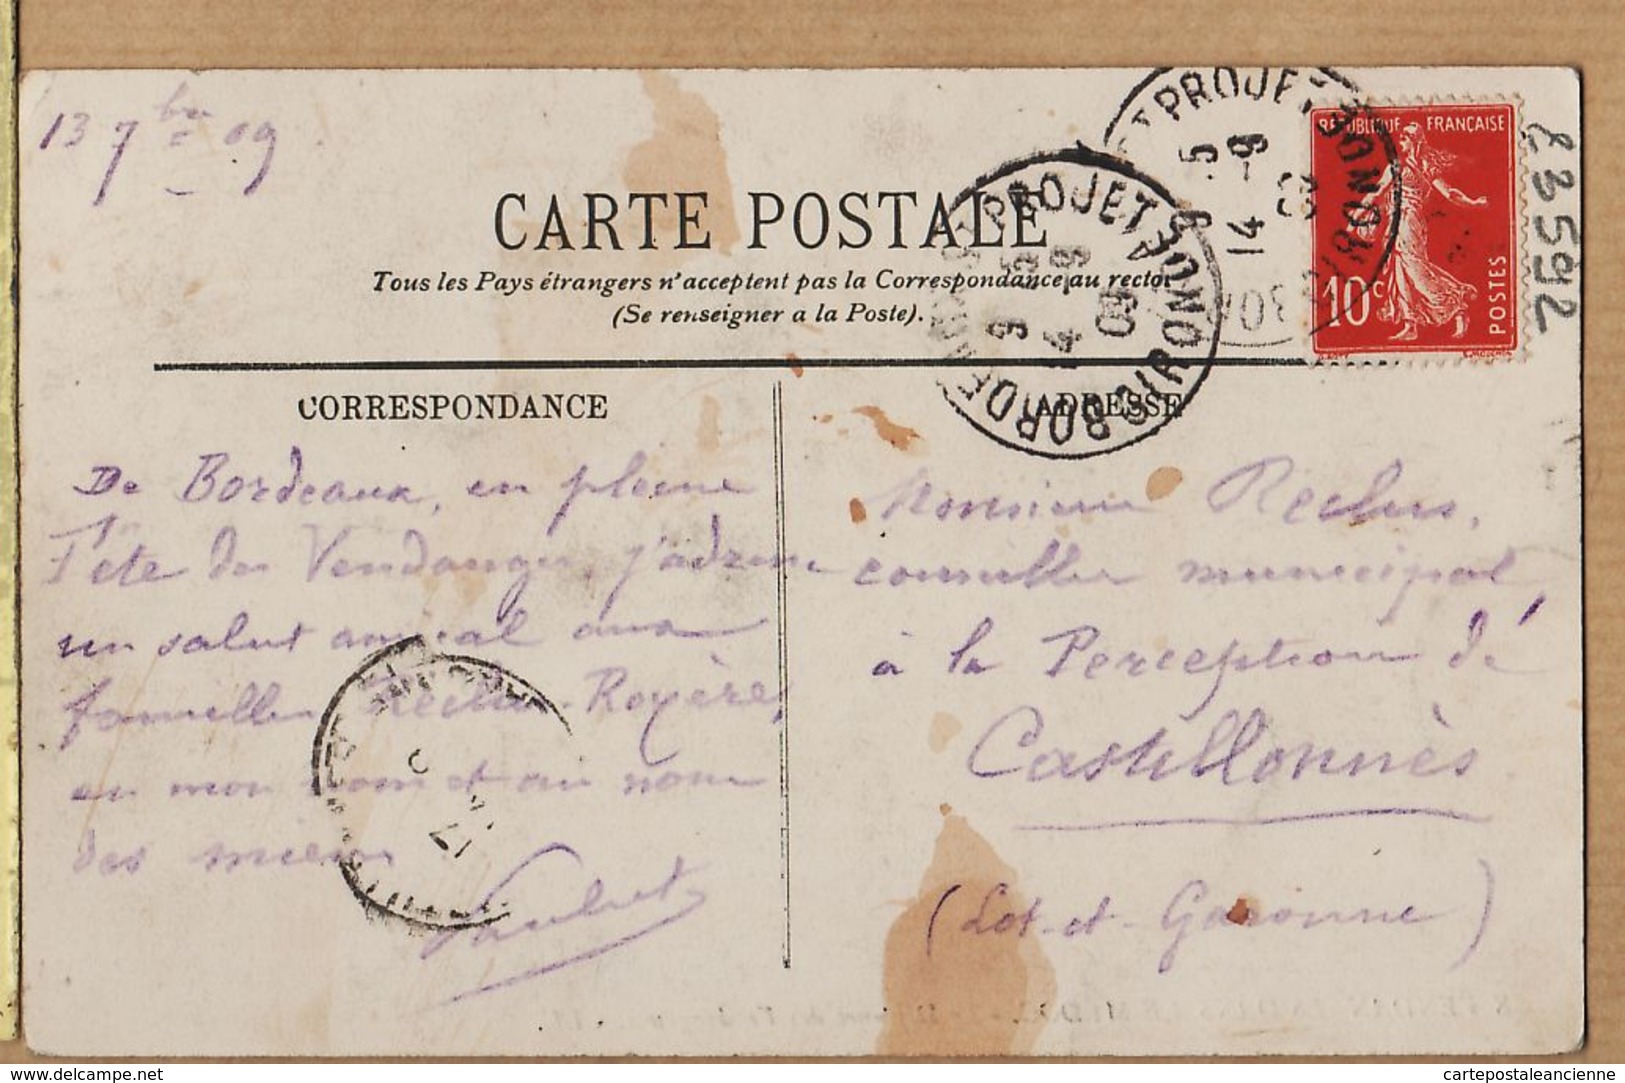 13 7bre 09
CARTE POSTALE
Tous les Pays étrangers n'acceptent pas la Correspondance au recto
(Se renseigner a la Poste).
RÉPUBLIQUE FRANÇAISE
10c
POSTES
23592
ST PROJET
BORDEAUX
GIRONDE
CORRESPONDANCE
De Bordeaux, en pleine
Fête des Vendanges, j'adresse
un salut amical aux
familles Reclus-Royère,
en mon nom et au nom
des miens
ADRESSE
Monsieur Reclus,
conseiller municipal,
à la Perception de
Castillonnès
(Lot-et-Garonne)
delcampe.net
cartepostaleancienne